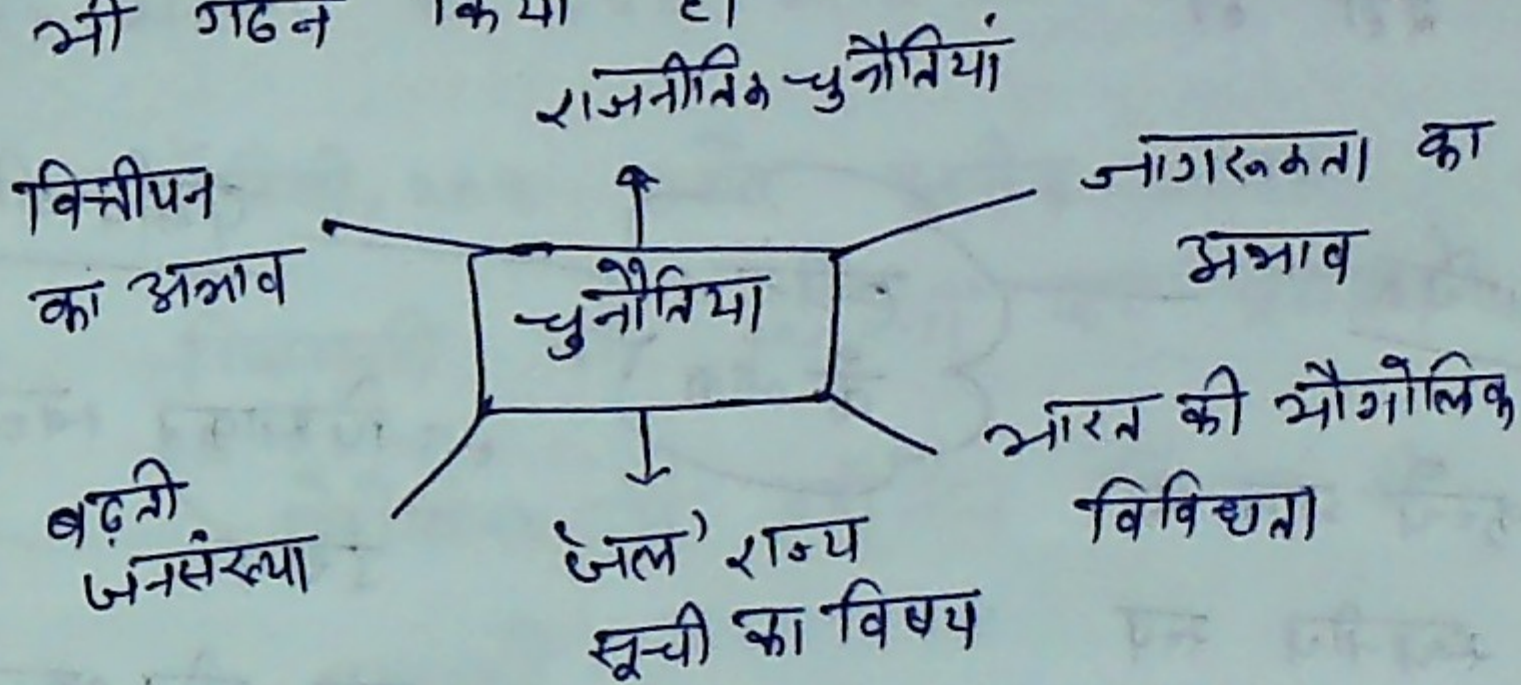 भी गठन किया है।
राजनीतिक चुनौतियां
वित्तीयन
का अभाव
जागरूकता का
अभाव
चुनौतियां
भारत की भौगोलिक
विविधता
बढ़ती
जनसंख्या
'जल' राज्य
सूची का विषय